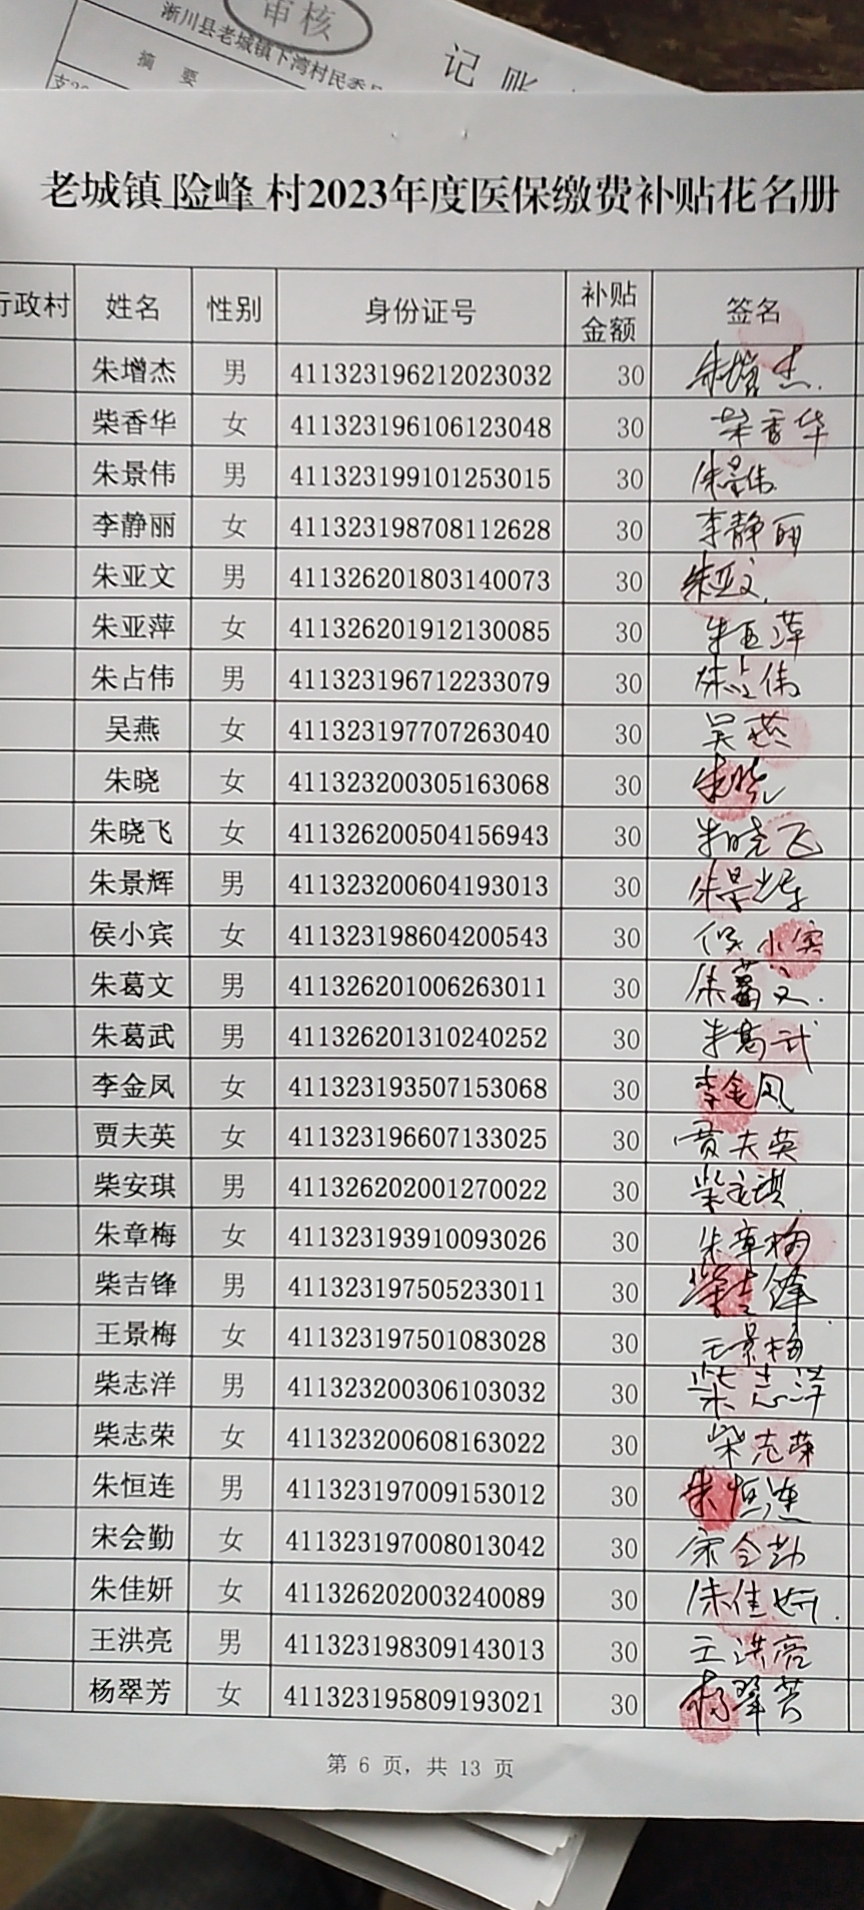 审核
淅川县老城镇下湾村民委
记账
摘 要
老城镇 险峰 村2023年度医保缴费补贴花名册
行政村 姓名 性别 身份证号 补贴金额 签名
朱增杰 男 411323196212023032 30 朱增杰
柴香华 女 411323196106123048 30 柴香华
朱景伟 男 411323199101253015 30 朱景伟
李静丽 女 411323198708112628 30 李静丽
朱亚文 男 411326201803140073 30 朱亚文
朱亚萍 女 411326201912130085 30 朱亚萍
朱占伟 男 411323196712233079 30 朱占伟
吴燕 女 411323197707263040 30 吴燕
朱晓 女 411323200305163068 30 朱晓
朱晓飞 女 411326200504156943 30 朱晓飞
朱景辉 男 411323200604193013 30 朱景辉
侯小宾 女 411323198604200543 30 侯小宾
朱葛文 男 411326201006263011 30 朱葛文
朱葛武 男 411326201310240252 30 朱葛武
李金凤 女 411323193507153068 30 李金凤
贾夫英 女 411323196607133025 30 贾夫英
柴安琪 男 411326202001270022 30 柴安琪
朱章梅 女 411323193910093026 30 朱章梅
柴吉锋 男 411323197505233011 30 柴吉锋
王景梅 女 411323197501083028 30 王景梅
柴志洋 男 411323200306103032 30 柴志洋
柴志荣 女 411323200608163022 30 柴志荣
朱恒连 男 411323197009153012 30 朱恒连
宋会勤 女 411323197008013042 30 宋会勤
朱佳妍 女 411326202003240089 30 朱佳妍
王洪亮 男 411323198309143013 30 王洪亮
杨翠芳 女 411323195809193021 30 杨翠芳
第 6 页，共 13 页